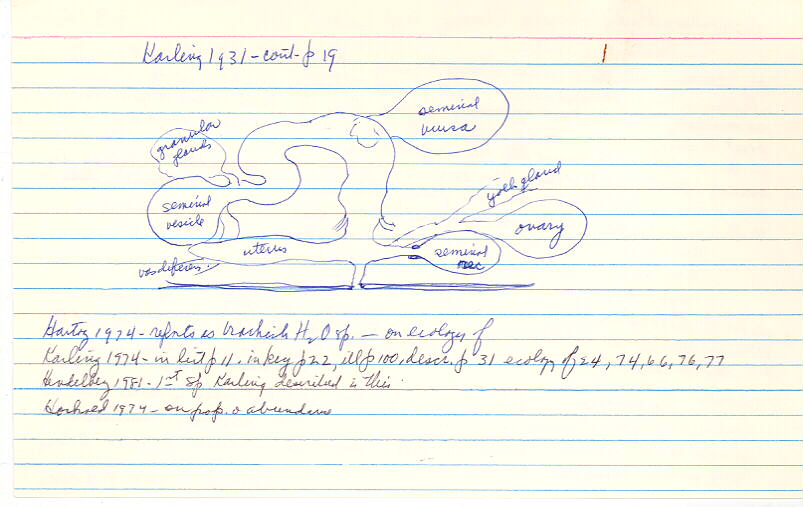 Karling 1931 - cont - p 19
1
seminal
bursa
granular
glands
yolk gland
seminal
vesicle
ovary
uterus
seminal
rec
vas deferens
Hartog 1974 - refers as brackish H2O sp. - on ecology of
Karling 1974 - in list p 11, in key p 22, ill p 100, descr. p 31 ecology of 24, 74, 66, 76, 77
1981 - 1st sp Karling described in this
1974 - on prop. o abundans